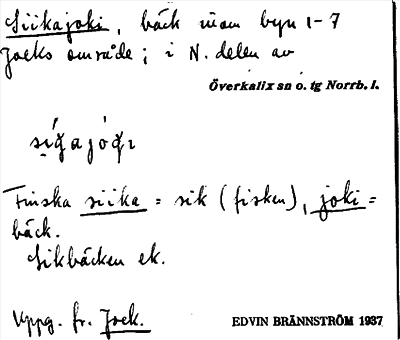 Siikajoki, bäck inom byn 1-7
Jocks område; i N. delen av
Överkalix sn o. tg Norrb. l.
Finska siika = sik (fisken), joki =
bäck.
Sikbäcken ek.
Uppg. fr. Jock.
EDVIN BRÄNNSTRÖM 1937